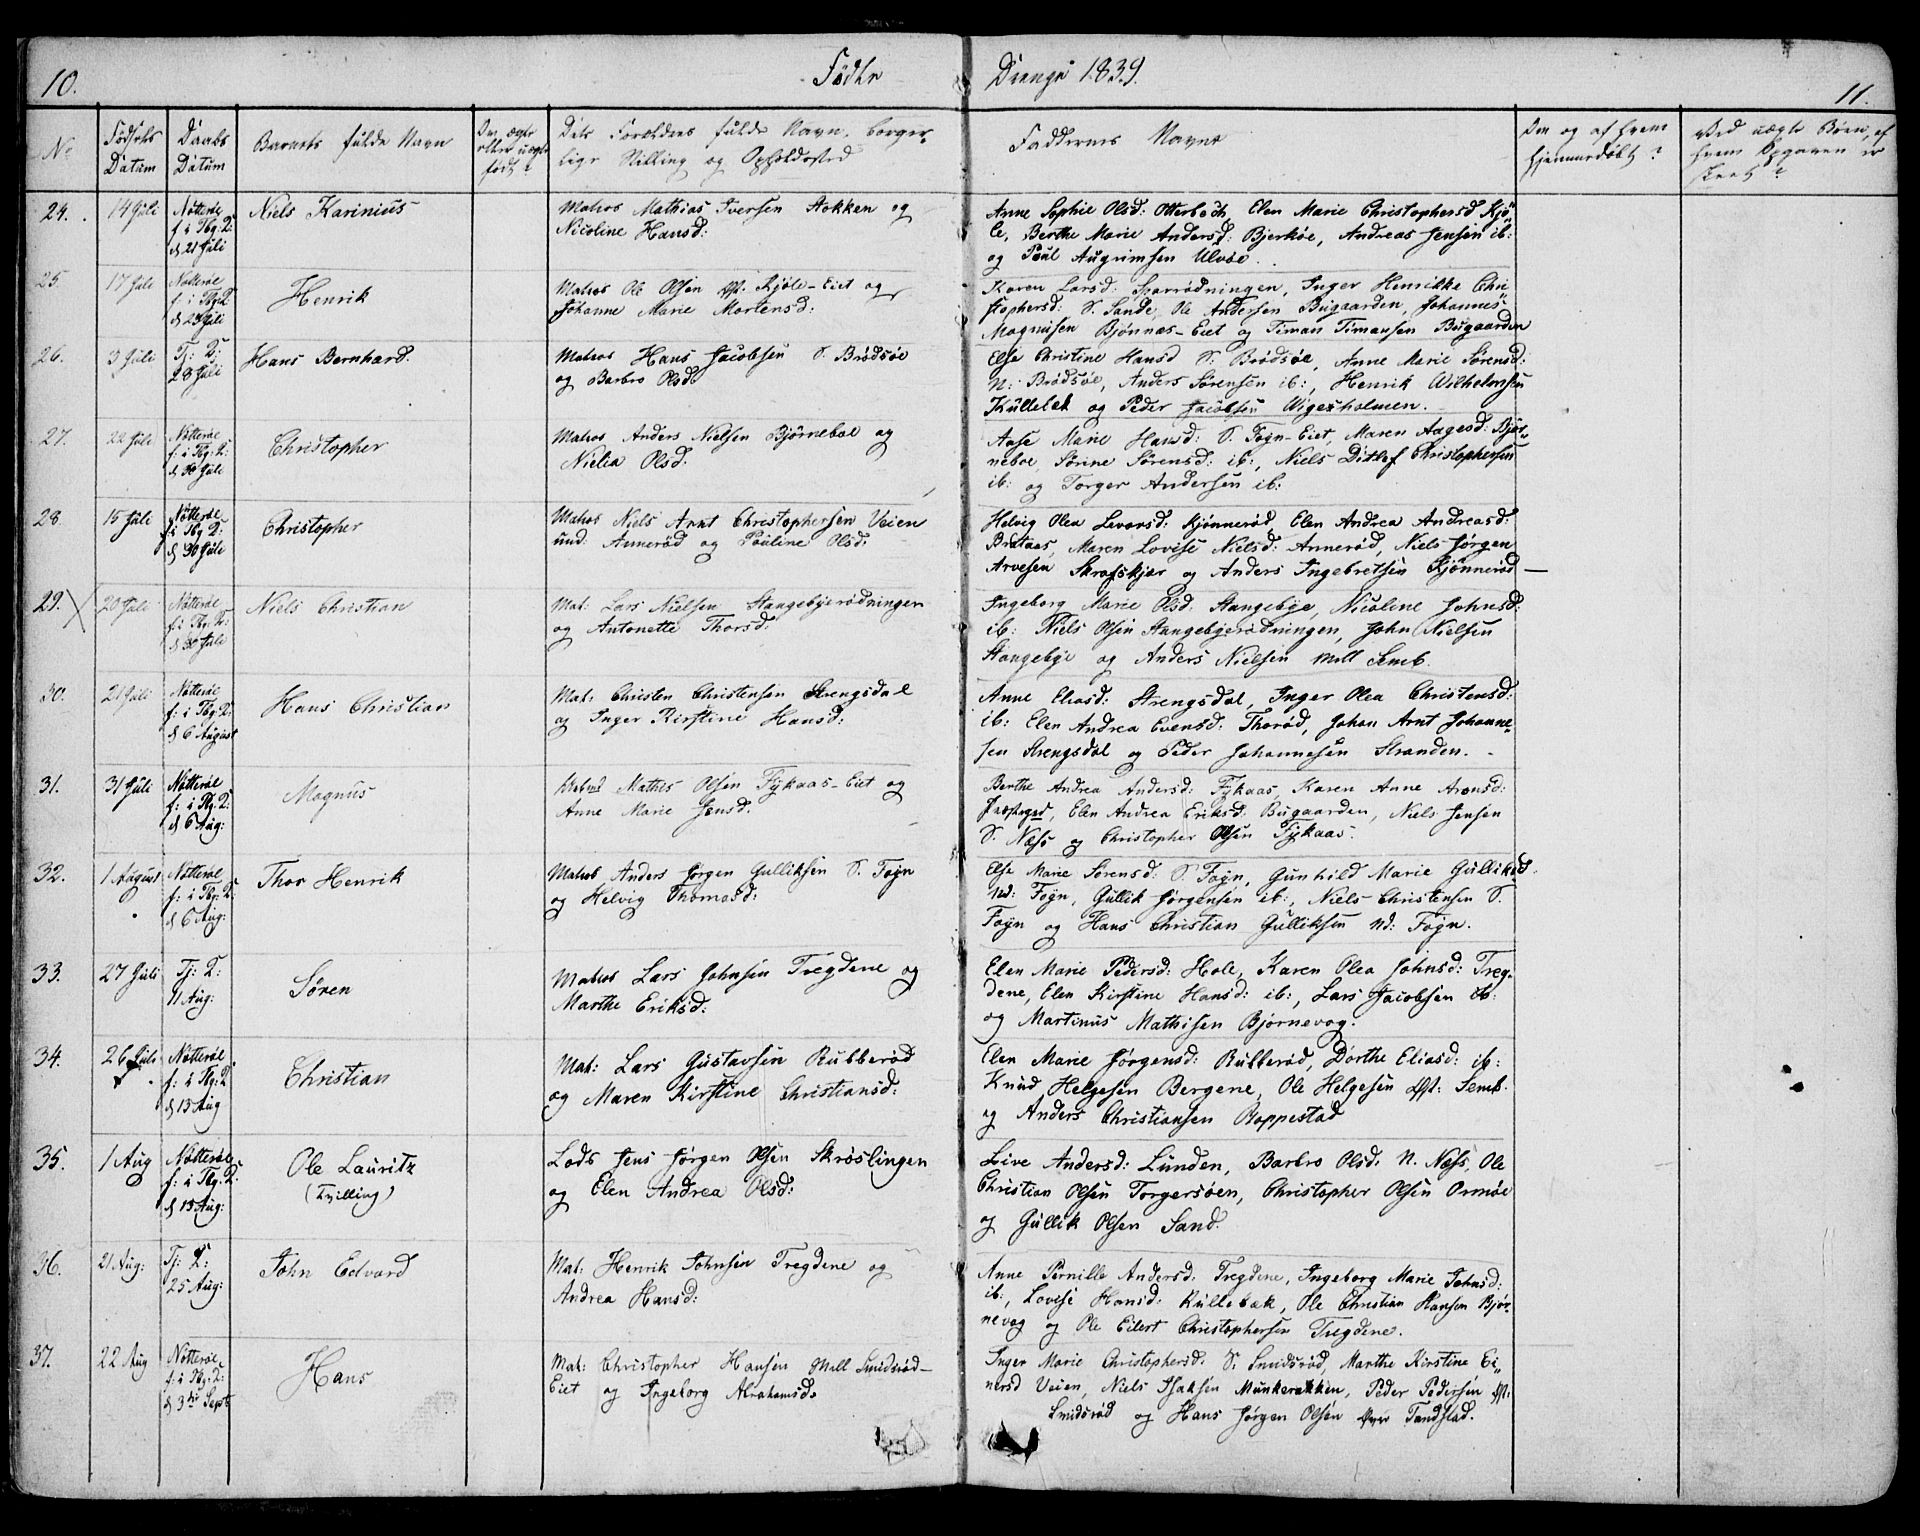 10.
Fødte
Drenge 1839.
11.
No
Fødsels
Datum
Daabs
Datum
Barnets fulde Navn
Om ægte
eller uægte
født?
Dets Forældres fulde Navn, borger-
lige Stilling og Opholdssted
Faddernes Navne
Om og af hvem
hjemmedøbt?
Ved uægte Børn, af
hvem Opgaven er
skeet?
24.
14 Juli
Nøtterøe
f: i Tbg: D:
d 21 Juli
Niels Karinius
Matros Mathias Iversen Stokken og
Nicoline Hansd:
Anne Sophie Olsd: Otterbech, Elen Marie Christophersd Kjø-
le, Berthe Marie Andersd: Bjerkøe, Andreas Jensen ib:
og Poul Augrimsen Ulvøe.
25.
17 Juli
Nøtterøe
f: i Tbg: D:
d 23 Juli
Henrik
Matros Ole Olsen Øst. Kjøle-Eiet og
Johanne Marie Mortensd:
Karen Larsd: Skarrødningen, Inger Henrikke Chri
stophersd: S. Sande, Ole Andersen Bugaarden, Johannes
Magnusen Bjønnæs-Eiet og Timan Timansen Bugaarden
26.
3 Juli
Tj: D:
28 Juli
Hans Bernhard.
Matros Hans Jacobsen S. Brødsøe
og Barbro Olsd:
Else Christine Hansd S: Brødsøe, Anne Marie Sørensd:
N: Brødsøe, Anders Sørensen ib:, Henrik Wilhelmsen
Küllebek og Peder Jacobsen Vigersholmen.
27.
22 Juli
Nøtterøe
f: i Tbg: D:
d 30 Juli
Christopher
Matros Anders Nielsen Bjørneboe og
Nielia Olsd.
Aase Marie Hansd: S. Føgn-Eiet, Maren Aagesd: Bjør-
neboe, Sørine Sørensd: ib:, Niels Ditlef Christophersen
ib: og Torger Andersen ib:
28.
15 Juli
Nøtterøe
f: i Tbg D:
d 30 Juli
Christopher
Matros Niels Arnt Christophersen Veien
und: Annerød og Pouline Olsd:
Helvig Olea Levorsd: Kjønnerød, Elen Andrea Andreasd:
Brataas, Maren Lovise Nielsd: Annerød, Niels Jørgen
Arvesen Skrofskjær og Anders Ingebretsen Kjønnerød
29.
20 Juli
Nøtterøe
f: i Tbg: D:
d 30 Juli
Niels Christian
Mat: Lars Nielsen Stangebyerødningen
og Antonette Thorsd:
Ingeborg Marie Olsd: Stangebye, Nicoline Johnsd:
ib: Niels Olsen Stangebyerødningen, John Nielsen
Stangebye og Anders Nielsen Mell Semb.
30.
21 Juli
Nøtterøe
f: i Tbg: D:
d 6 August
Hans Christian
Mat: Christen Christensen Strengsdal
og Inger Kirstine Hansd:
Anne Eliasd: Strengsdal, Inger Olea Christensd:
ib: Elen Andrea Evensd: Thorød, Johan Arnt Johanne-
sen Strengsdal og Peder Johannesen Stranden.
31.
31 Juli
Nøtterøe
f: i Tbg: D:
d 6 Aug:
Magnus
Matros Mathis Olsen Fykaas-Eiet og
Anne Marie Jensd:
Berthe Andrea Andersd: Fykaas, Karen Anne Aronsd:
Præsteged, Elen Andrea Eriksd. Bugaarden, Niels Jensen
S. Næss og Christopher Olsen Fykaas.
32.
1 August
Nøtterøe
f: i Tbg: D:
d 6 Aug:
Thor Henrik
Matros Anders Jørgen Gulliksen S. Føgn
og Helvig Thomasd:
Else Marie Sørensd: S. Føgn, Gunhild Marie Gulliksd.
Nd: Føgn, Gullik Jørgensen ib:, Niels Christensen S.
Føgn og Hans Christian Gulliksen Nd: Føgn.
33.
27 Juli
Tj: D:
11 Aug:
Sören
Matros Lars Johnsen Tregdene og
Marthe Eriksd:
Elen Marie Pedersd: Hole, Karen Olea Johnsd: Treg-
dene, Elen Kirstine Hansd: ib:, Lars Jacobsen ib:
og Martinus Mathisen Bjørnevog.
34.
26 Juli
Nøtterøe
f: i Tbg: D:
d 13 Aug
Christian
Mat: Lars Gustavsen Rubberød
og Maren Kirstine Christiansd:
Elen Marie Jørgensd: Rubberød, Dorthe Eliasd: ib:
Knud Helgesen Bergene, Ole Helgesen Øst: Semb.
og Anders Christiansen Roppestad
35.
1 Aug
Nøtterøe
f: i Tbg: D:
d 13 Aug:
Ole Lauritz
(Tvilling)
Lods Jens Jørgen Olsen Skrøslingen
og Elen Andrea Olsd:
Live Andersd: Lunden, Barbro Olsd: N. Næss, Ole
Christian Olsen Torgersøen, Christopher Olsen Ormøe
og Gullik Olsen Sand.
36.
21 Aug:
Tj: D:
25 Aug:
John Edvard
Mat: Henrik Johnsen Tregdene og
Andrea Hansd:
Anne Pernille Andersd. Tregdene, Ingeborg Marie Johnsd:
ib:, Lovise Hansd: Küllebæk, Ole Christian Hansen Bjør-
nevog og Ole Eilert Christophersen Tregdene.
37.
22 Aug
Nøtterøe
f: i Tbg: D:
d 3die Sept
Hans
Mat: Christopher Hansen Mell Smidsrød-
Eiet og Ingeborg Abrahamsd:
Inger Marie Christophersd: S. Smidsrød, Marthe Kirstine Ei-
nersd Veien, Niels Isaksen Munkerekken, Peder Pedersen Øst:
Smidsrød og Hans Jørgen Olsen Øvre Tandstad.